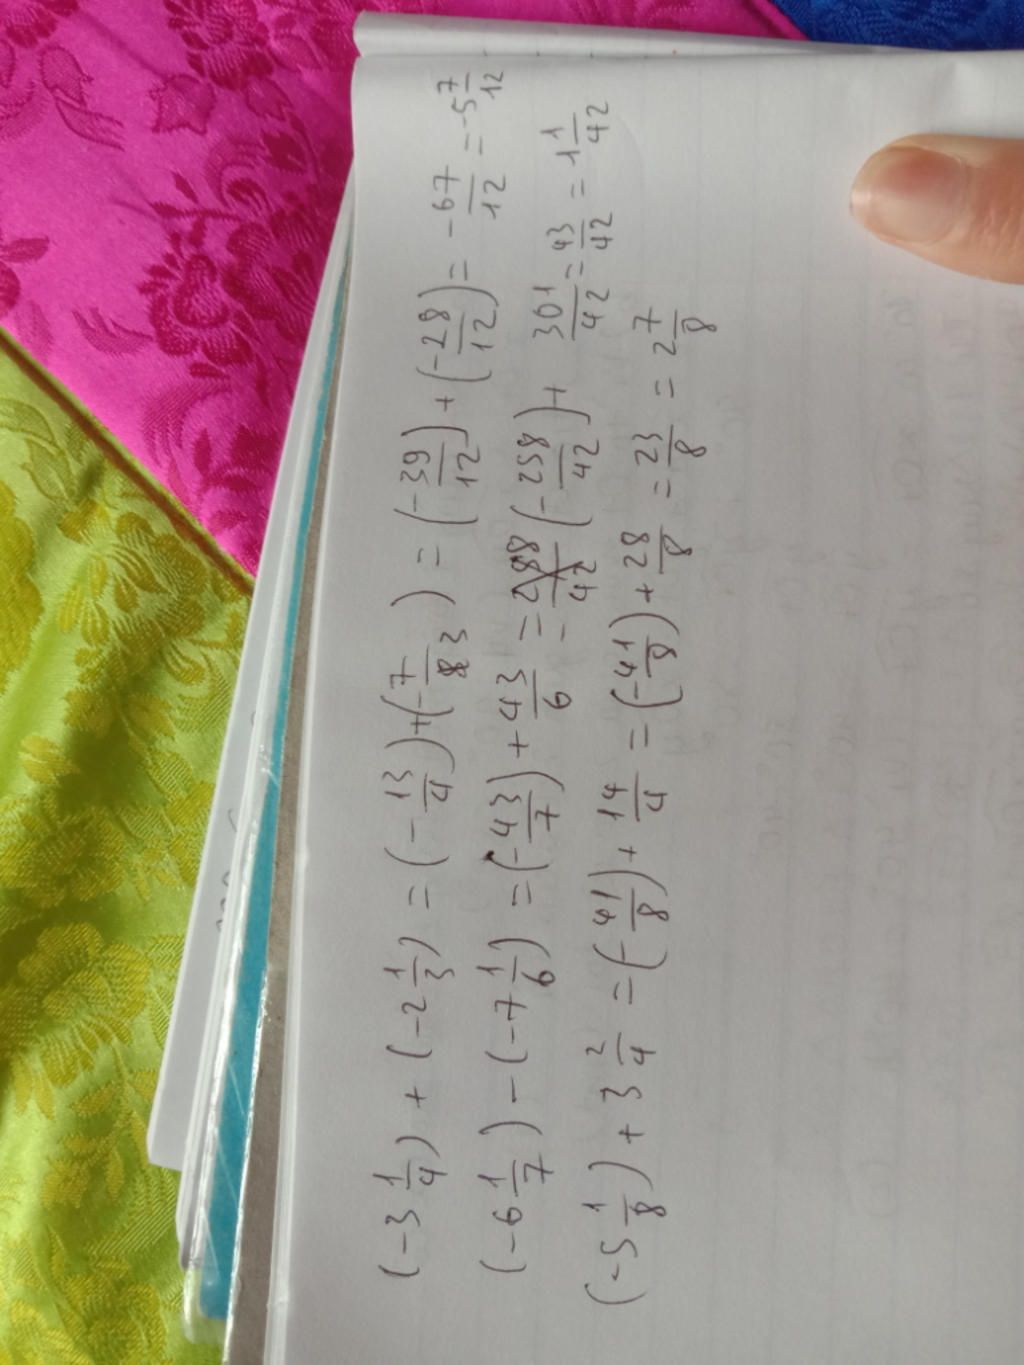 (-3 1/4) + (-2 1/3) = (-13/4) + (-7/3) = (-39/12) + (-28/12) = -67/12 = -5 7/12
(-6 1/7) - (-7 1/6) = (-43/7) + 43/6 = = (-258/42) + 301/42 = 43/42 = 1 1/42
(-5 1/8) + 3 2/4 = (-41/8) + 14/4 = (-41/8) + 28/8 = 23/8 = 2 7/8